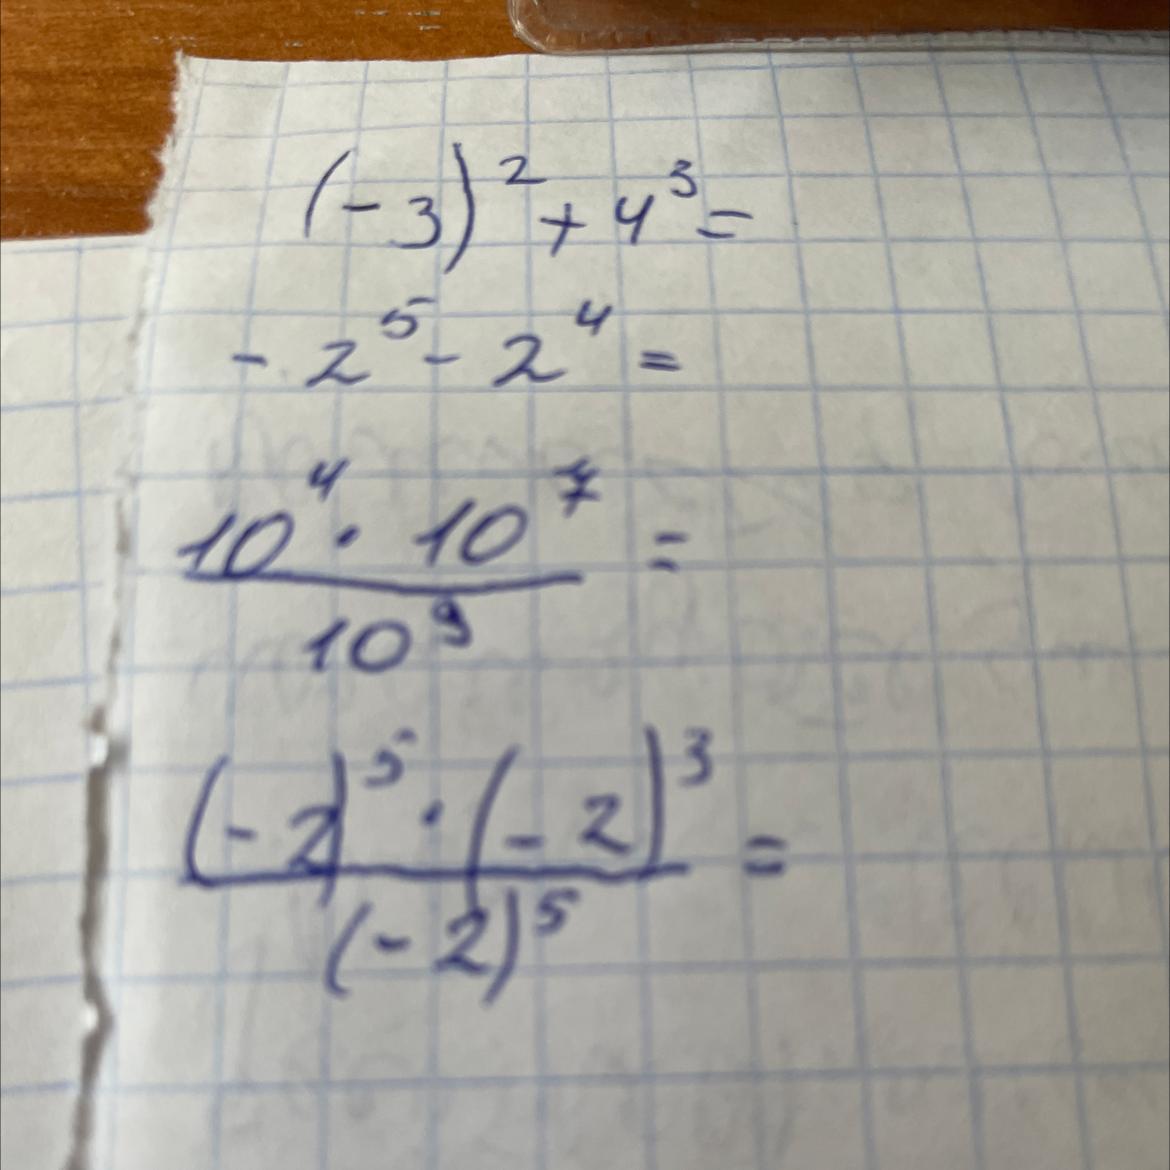 (-3)² + 4³ =
- 2⁵ - 2⁴ =
10⁴ · 10⁷ =
10⁹
(-2)⁵ · (-2)³ =
(-2)⁵